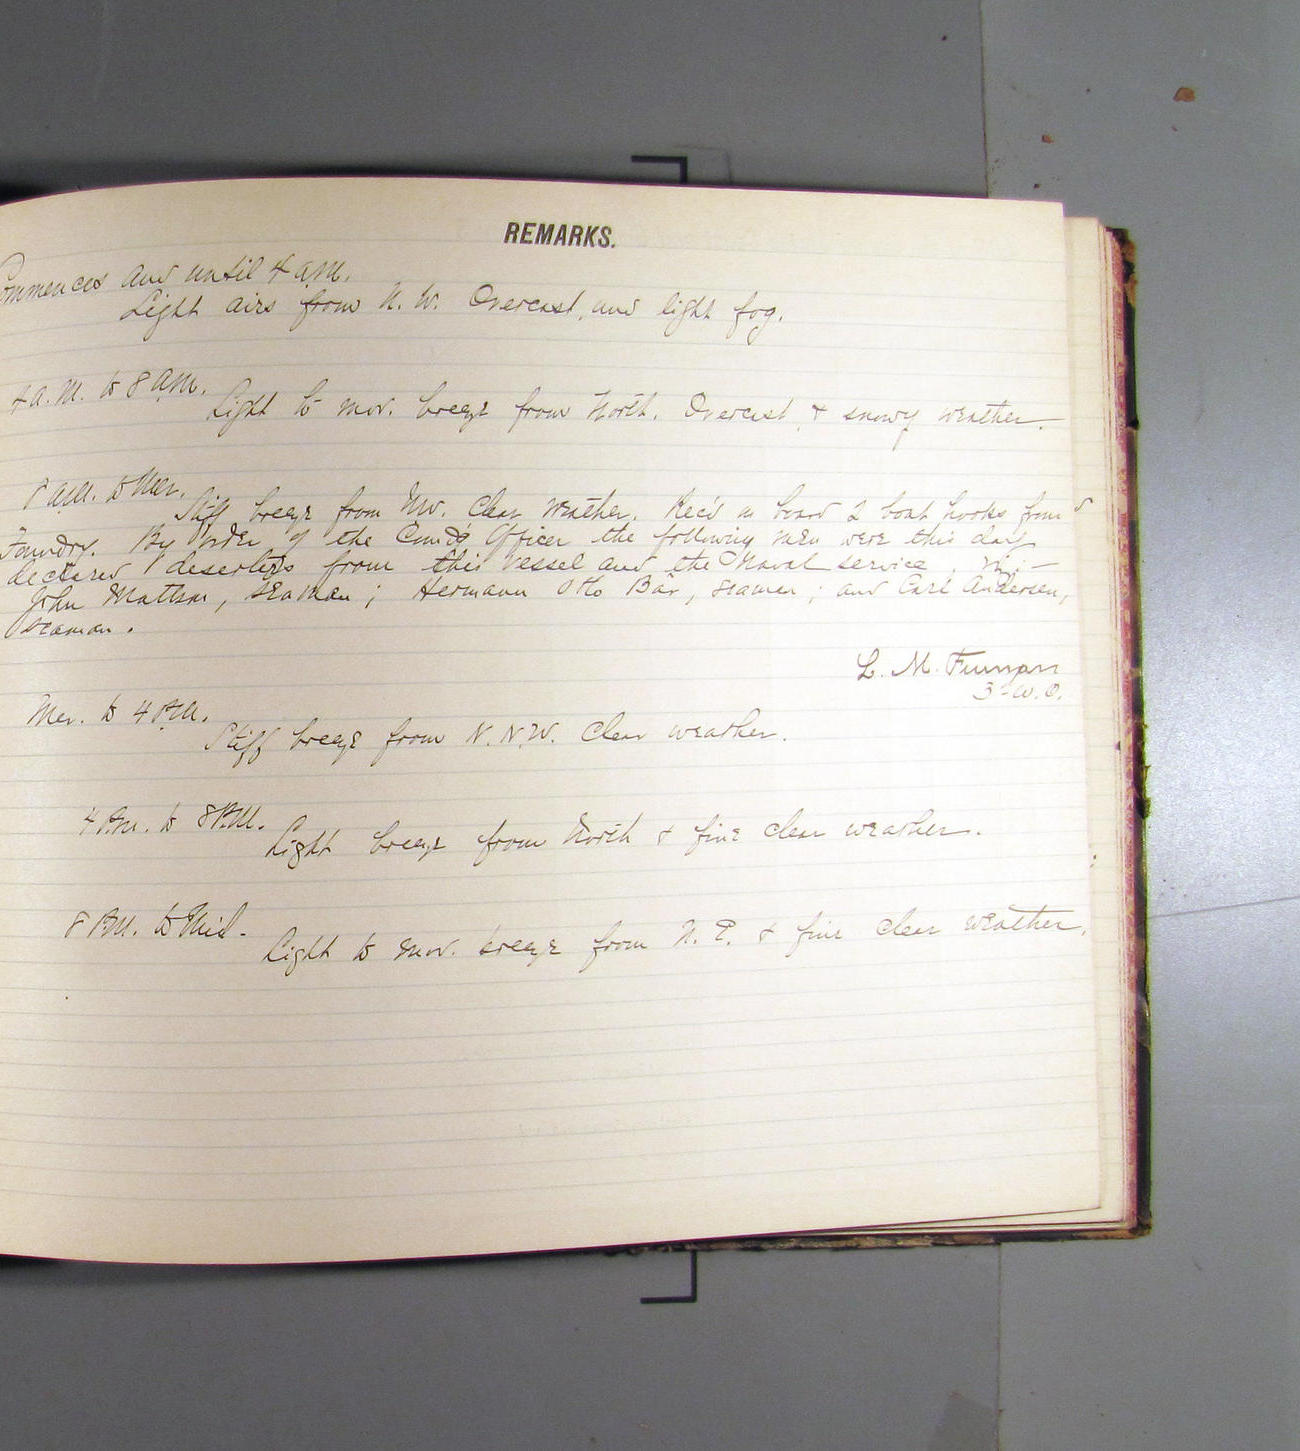 REMARKS.
Commences and until 4 a.m.
Light airs from N. W. Overcast, and light fog.
4 a.M. to 8 a.m.
Light to mod. breeze from North. Overcast & snowy weather.
8 a.m. to Mer.
Stiff breeze from NW. Clear weather. Rec'd on board 2 boat hooks from
Foundry. By order of the Comd'g Officer the following men were this day
declared deserters from this vessel and the Naval service, viz:—
John Mattson, seaman; Hermann Otto Bär, seaman; and Carl Andersen,
seaman.
L. M.
3d W. O.
Mer. to 4 P.M.
Stiff breeze from N.N.W. Clear weather.
4 P.m. to 8 P.M.
Light breeze from North & fine clear weather.
8 P.M. to Mid.
Light to mod. breeze from N. E. & fine clear weather.